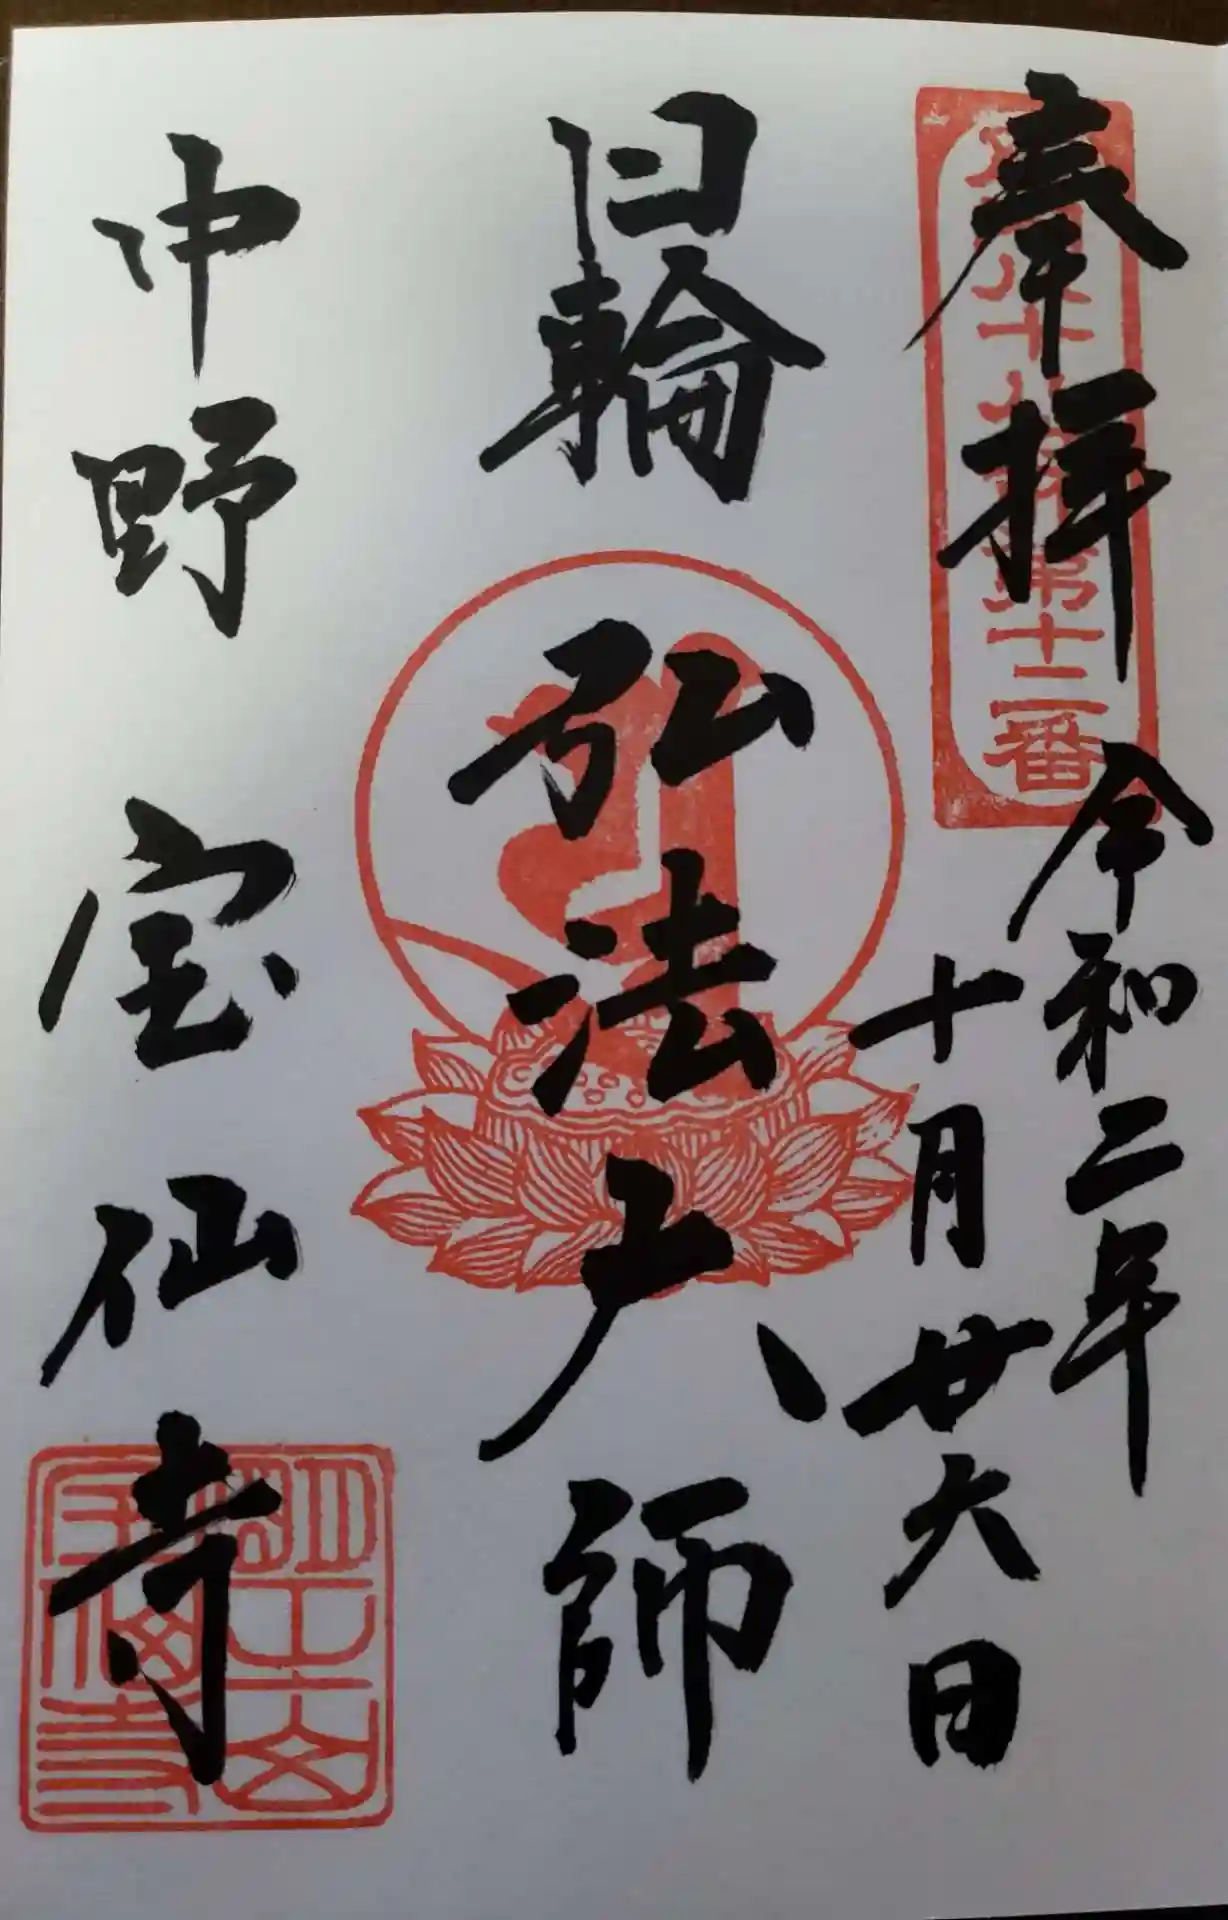 奉拝
令和二年
十月廿六日
日輪
弘法大師
中野
宝仙寺
第十二番